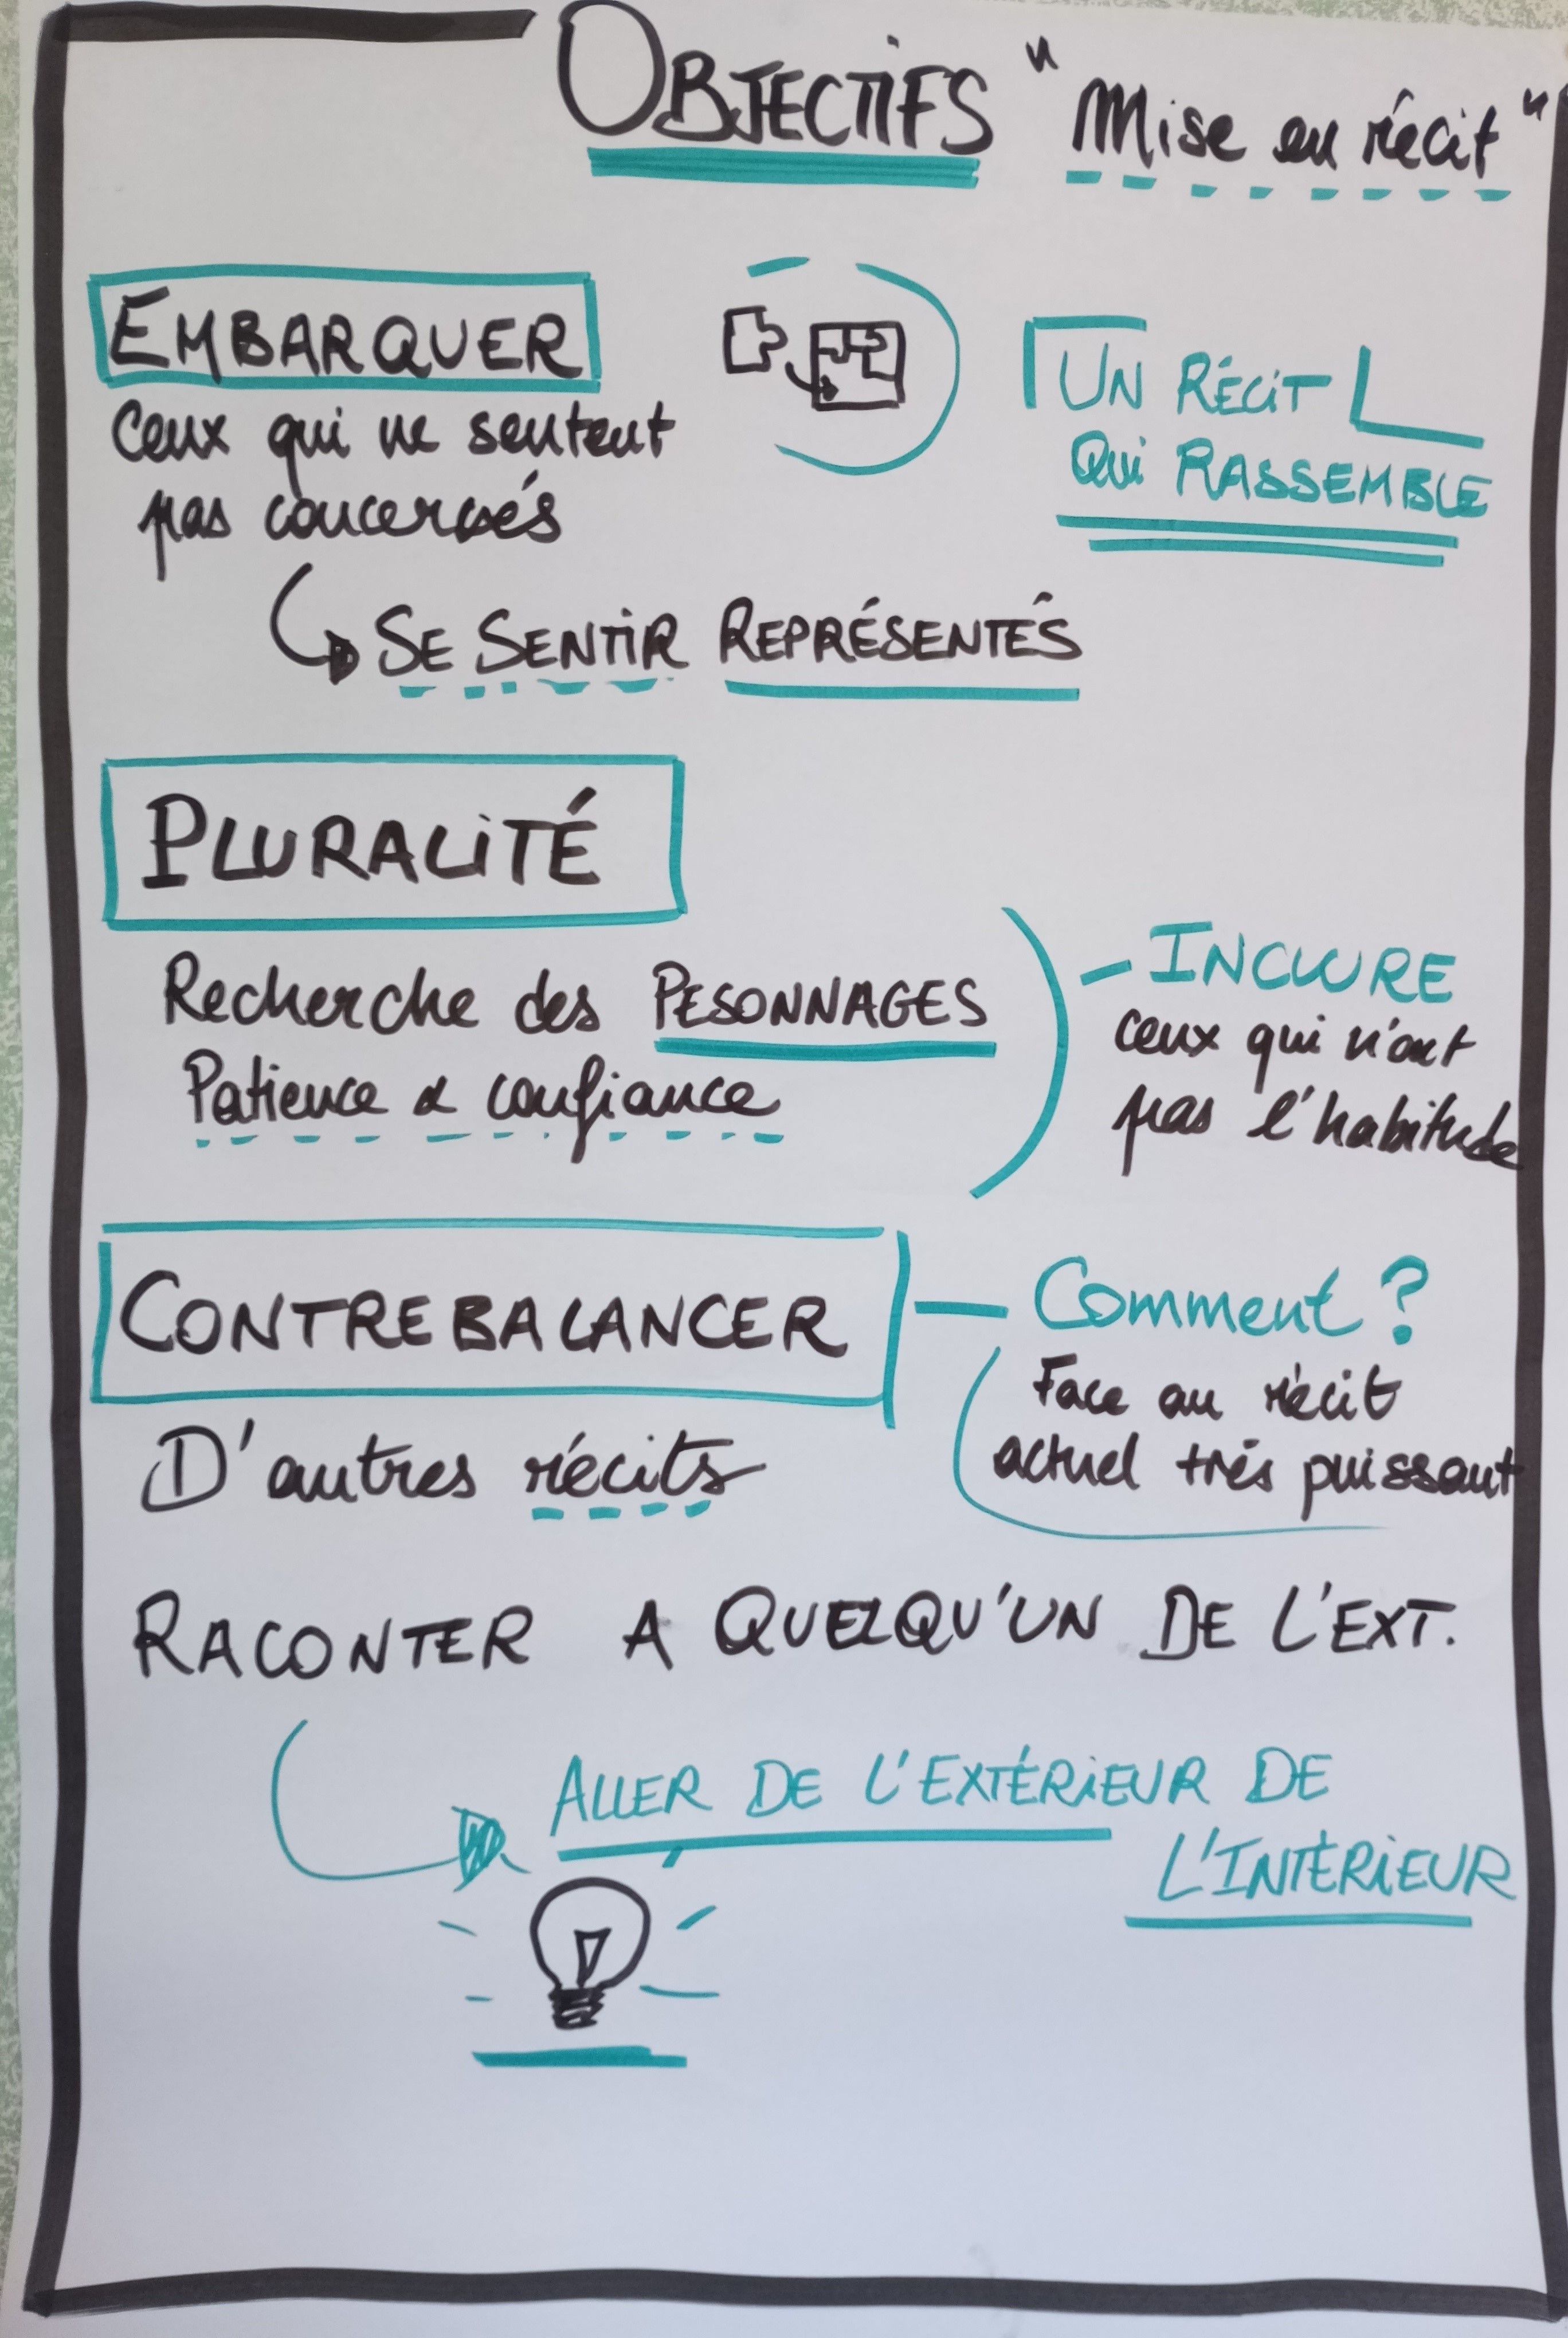 OBJECTIFS "Mise en récit"
EMBARQUER
Ceux qui ne sentent
pas concernés
SE SENTIR REPRÉSENTÉS
UN RÉCIT
QUI RASSEMBLE
PLURALITÉ
Recherche des PESONNAGES
Patience & confiance
- INCLURE
ceux qui n'ont
pas l'habitude
CONTREBALANCER
D'autres récits
- Comment ?
Face au récit
actuel très puissant
RACONTER A QUELQU'UN DE L'EXT.
ALLER DE L'EXTÉRIEUR DE
L'INTÉRIEUR